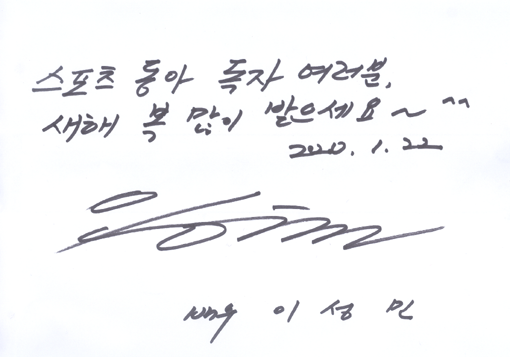 스포츠 동아 독자 여러분,
새해 복 많이 받으세요~ ^^
2020. 1. 22
배우 이성민